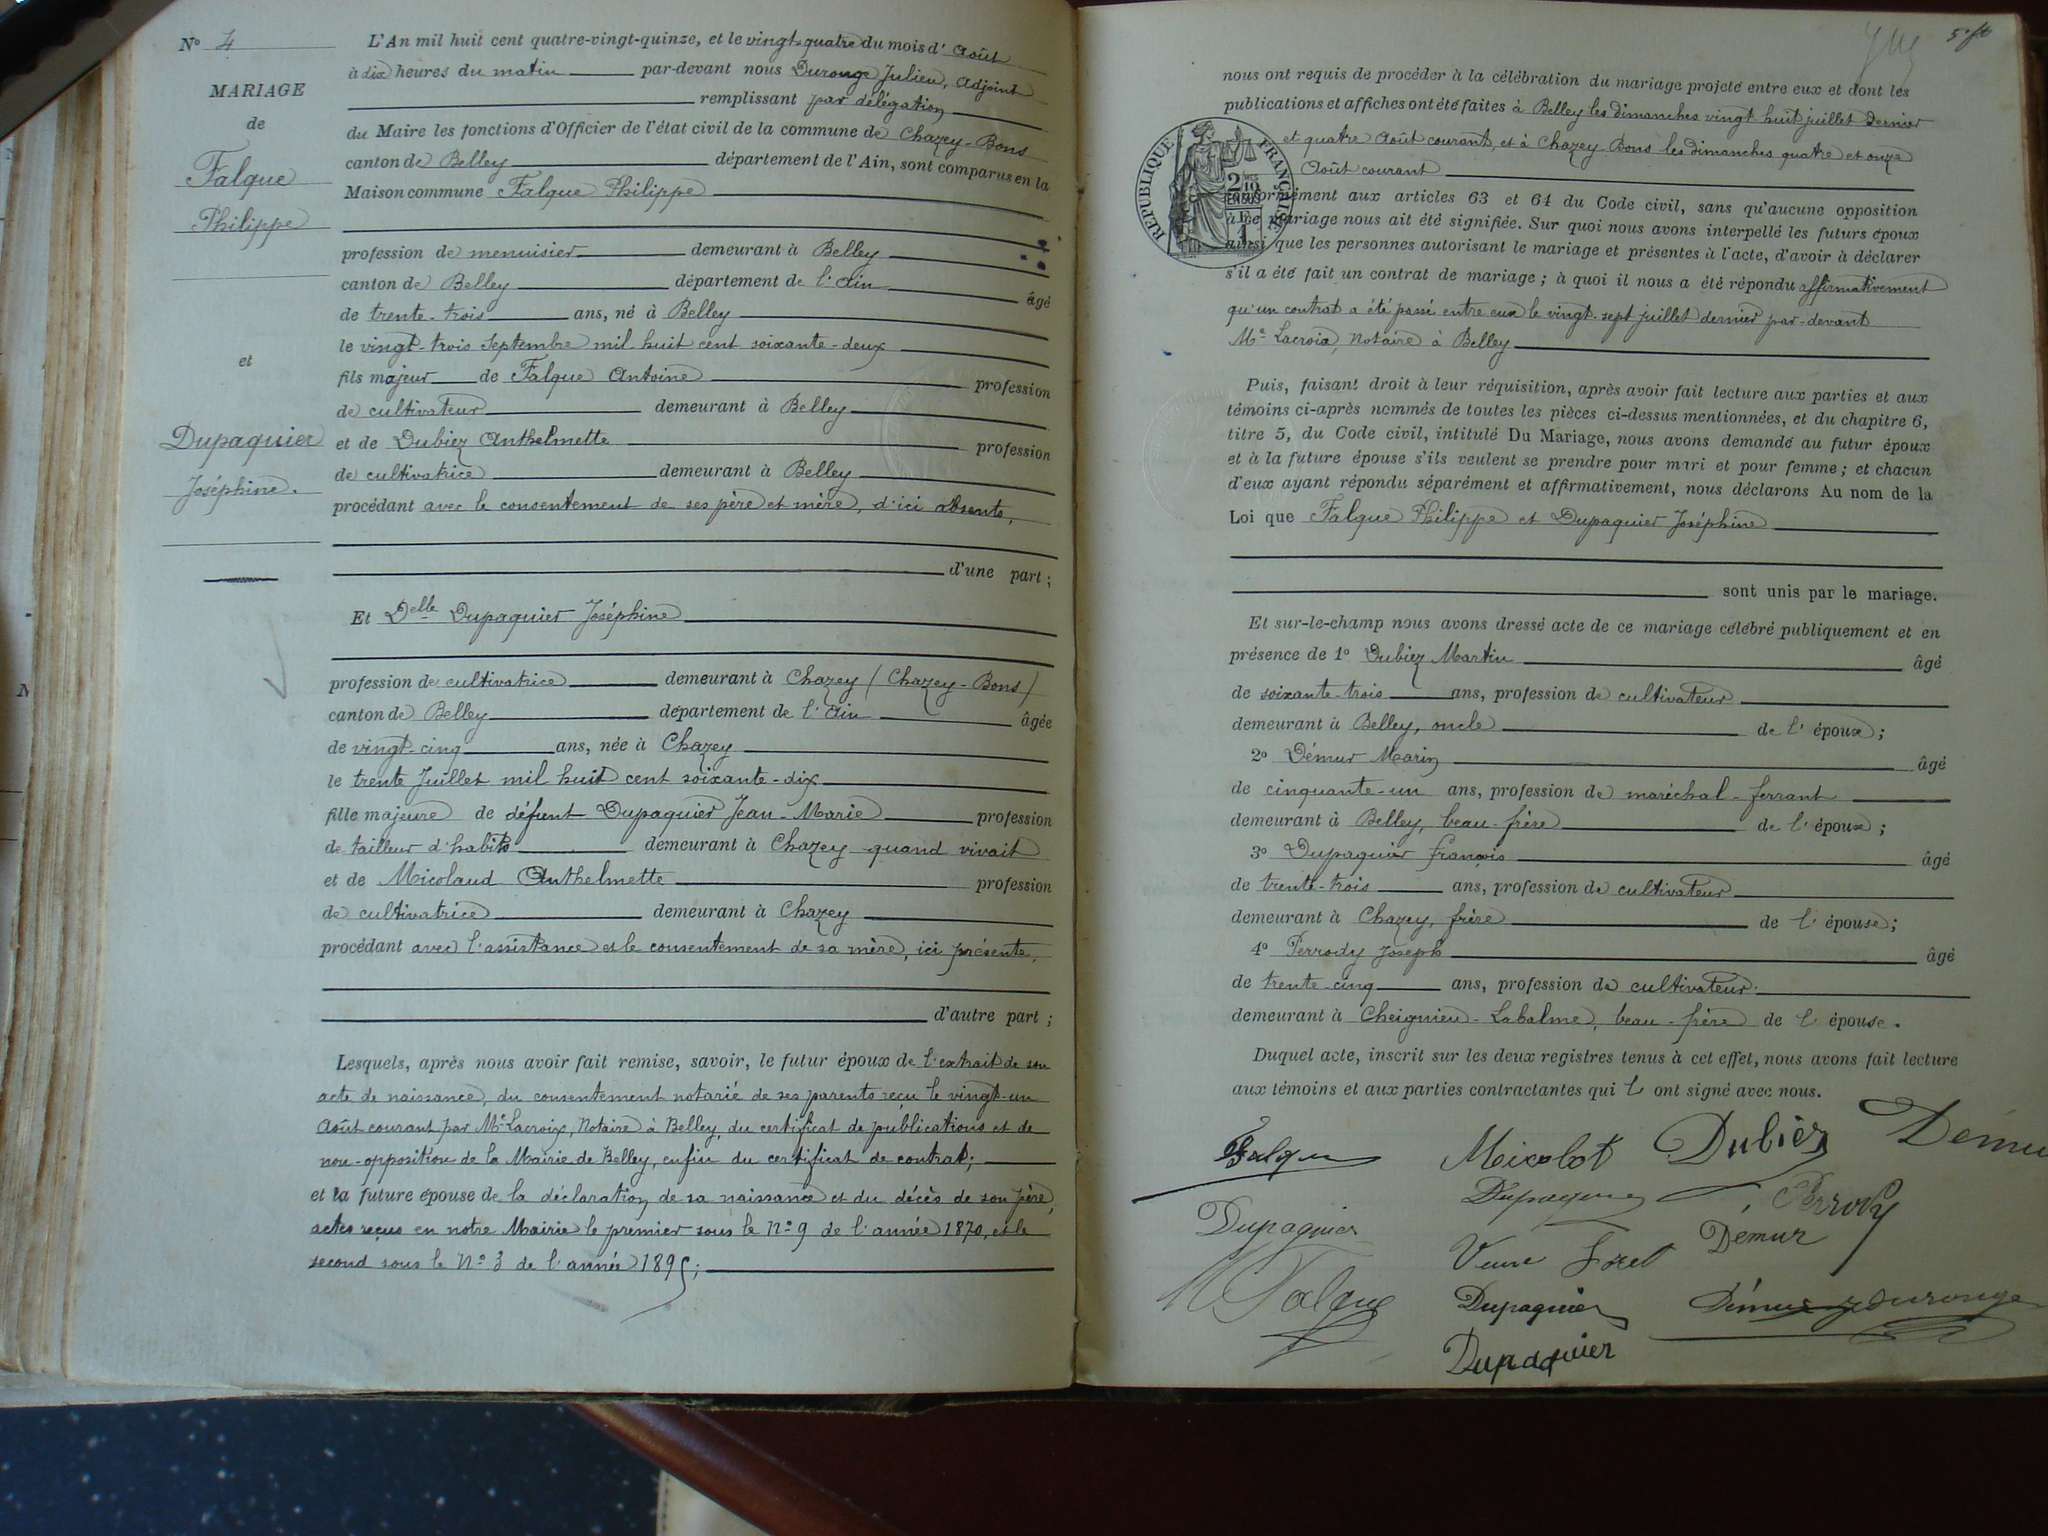 N° 4
MARIAGE
de
Falque
Philippe
et
Dupaquier
Joséphine.
L'An mil huit cent quatre-vingt-quinze, et le vingt-quatre du mois d' Août
à dix heures du matin par-devant nous Durouge Julien, Adjoint
remplissant par délégation
du Maire les fonctions d'Officier de l'état civil de la commune de Chazey-Bons
canton de Belley département de l'Ain, sont comparus en la
Maison commune Falque Philippe
profession de menuisier demeurant à Belley
canton de Belley département de l'Ain âgé
de trente-trois ans, né à Belley
le vingt-trois Septembre mil huit cent soixante-deux
fils majeur de Falque Antoine profession
de cultivateur demeurant à Belley
et de Dubiez Anthelmette profession
de cultivatrice demeurant à Belley
procédant avec le consentement de ses père et mère, d'ici absents,
d'une part ;
Et Delle Dupaquier Joséphine
profession de cultivatrice demeurant à Chazey (Chazey-Bons)
canton de Belley département de l'Ain âgée
de vingt-cinq ans, née à Chazey
le trente Juillet mil huit cent soixante-dix
fille majeure de défunt Dupaquier Jean-Marie profession
de tailleur d'habits demeurant à Chazey quand vivait
et de Micolaud Anthelmette profession
de cultivatrice demeurant à Chazey
procédant avec l'assistance et le consentement de sa mère, ici présente,
d'autre part ;
Lesquels, après nous avoir fait remise, savoir, le futur époux de l'extrait de son
acte de naissance, du consentement notarié de ses parents reçu le vingt-un
Août courant par Me Lacroix, Notaire à Belley, du certificat de publications et de
non-opposition de la Mairie de Belley, enfin du certificat de contrat;
et la future épouse de la déclaration de sa naissance et du décès de son père,
actes reçus en notre Mairie le premier sous le N° 9 de l'année 1870, et le
second sous le N° 3 de l'année 1895;
5e ft
nous ont requis de procéder à la célébration du mariage projeté entre eux et dont les
publications et affiches ont été faites à Belley les dimanches vingt-huit juillet dernier
et quatre Août courant, et à Chazey-Bons les dimanches quatre et onze
Août courant
RÉPUBLIQUE FRANÇAISE
conformément aux articles 63 et 64 du Code civil, sans qu'aucune opposition
à ce mariage nous ait été signifiée. Sur quoi nous avons interpellé les futurs époux
ainsi que les personnes autorisant le mariage et présentes à l'acte, d'avoir à déclarer
s'il a été fait un contrat de mariage ; à quoi il nous a été répondu affirmativement
qu'un contrat a été passé entre eux le vingt-sept juillet dernier par-devant
Me Lacroix, Notaire à Belley
Puis, faisant droit à leur réquisition, après avoir fait lecture aux parties et aux
témoins ci-après nommés de toutes les pièces ci-dessus mentionnées, et du chapitre 6,
titre 5, du Code civil, intitulé Du Mariage, nous avons demandé au futur époux
et à la future épouse s'ils veulent se prendre pour mari et pour femme ; et chacun
d'eux ayant répondu séparément et affirmativement, nous déclarons Au nom de la
Loi que Falque Philippe et Dupaquier Joséphine
sont unis par le mariage.
Et sur-le-champ nous avons dressé acte de ce mariage célébré publiquement et en
présence de 1° Dubiez Martin âgé
de soixante-trois ans, profession de cultivateur
demeurant à Belley, oncle de l'époux ;
2° Démur Marin âgé
de cinquante-un ans, profession de maréchal-ferrant
demeurant à Belley, beau-frère de l'époux ;
3° Dupaquier françois âgé
de trente-trois ans, profession de cultivateur
demeurant à Chazey, frère de l'épouse ;
4° Perrody Joseph âgé
de trente-cinq ans, profession de cultivateur
demeurant à Cheignieu-Labalme, beau-frère de l'épouse.
Duquel acte, inscrit sur les deux registres tenus à cet effet, nous avons fait lecture
aux témoins et aux parties contractantes qui l' ont signé avec nous.
Falque Micolot Dubiez Démur
Dupaquier Perrody
Dupaquier Démur
M Falque
Dupaquier Durouge
Dupaquier